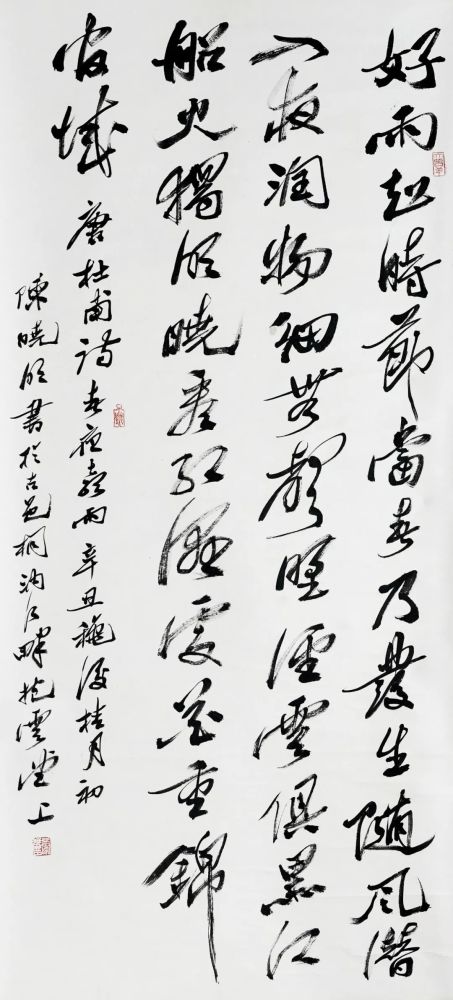 好雨知時節當春乃發生隨風潛
入夜潤物細無聲野徑雲俱黑江
船火獨明曉看紅濕處花重錦
官城 唐杜甫詩春夜喜雨辛丑穐後桂月初
陳曉明書於古邑桐汭江畔抱雲堂上